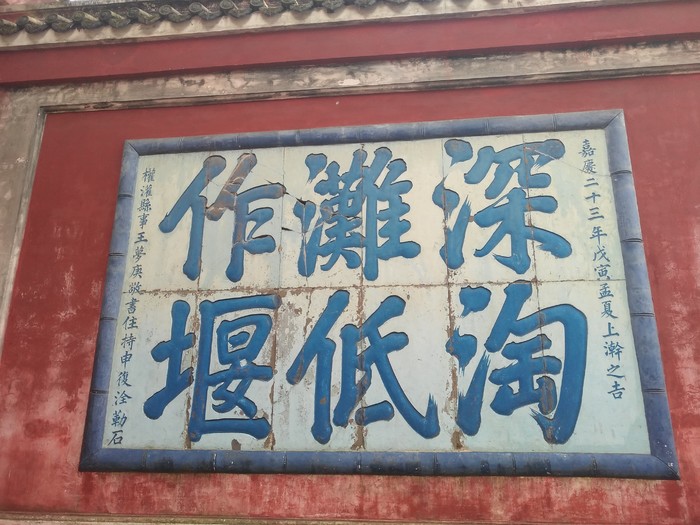 嘉慶二十三年戊寅孟夏上澣之吉
深淘
灘低
作堰
權灌縣事王夢庚敬書住持申復洤勒石